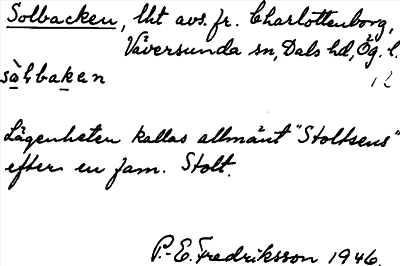 Solbacken, lht avs. fr. Charlottenborg,
Väversunda sn, Dals hd, Ög. l.
sò̱lbak̲en 12
Lägenheten kallas allmänt "Stoltsens"
efter en fam. Stolt.
P.-E. Fredriksson 1946.